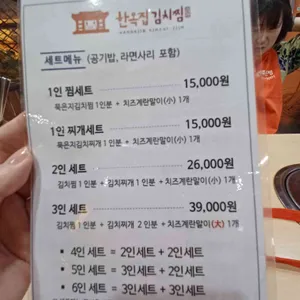 한옥집김치찜
HANOKZIP KIMCHI JJIM
세트메뉴 (공기밥, 라면사리 포함)
1인 찜세트 15,000원
묵은지김치찜 1인분 + 치즈계란말이(小) 1개
1인 찌개세트 15,000원
묵은지김치찌개 1인분 + 치즈계란말이(小) 1개
2인 세트 26,000원
김치찜 1인분 + 김치찌개 1인분 + 치즈계란말이(小) 1개
3인 세트 39,000원
김치찜 1인분 + 김치찌개 2인분 + 치즈계란말이(大) 1개
* 4인세트 = 2인세트 + 2인세트
* 5인세트 = 3인세트 + 2인세트
* 6인세트 = 3인세트 + 3인세트